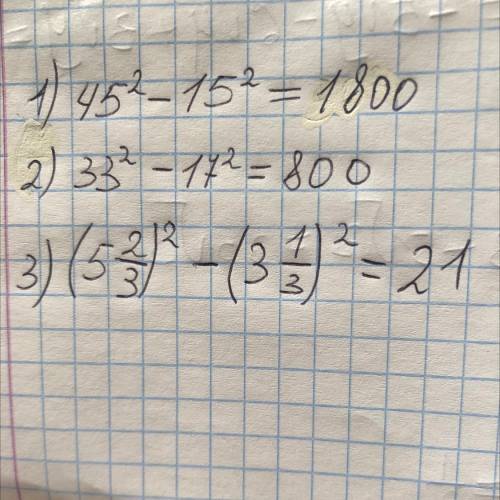 1) 45² - 15² = 1800
2) 33² - 17² = 800
3) (5 2/3)² - (3 1/3)² = 21